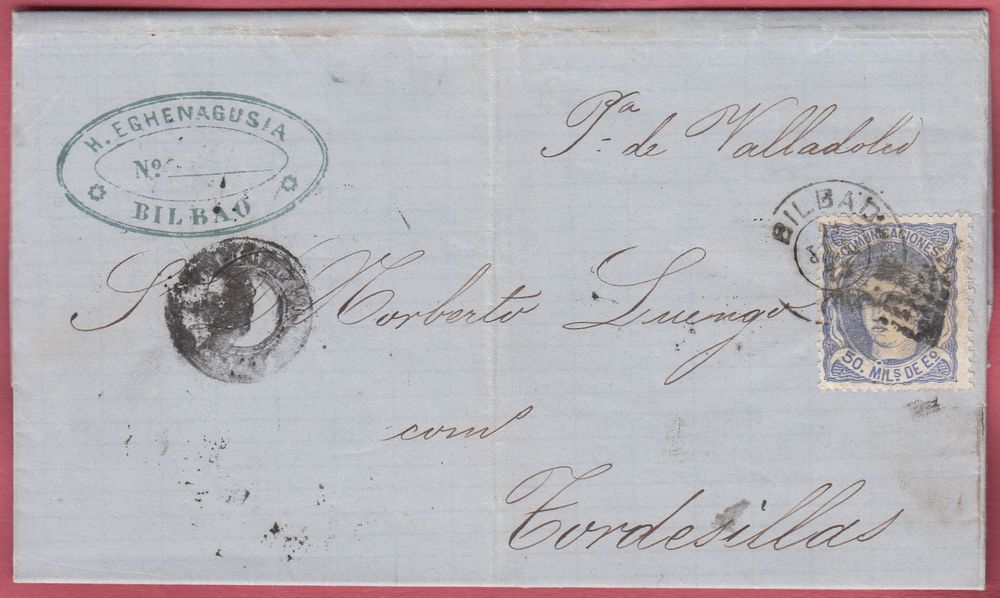 H. EGHENAGUSIA
Nº.
BILBAO
Pª. de Valladolid
BILBAO
COMUNICACIONES
50. MILS DE Eº
S. D. Norberto Luengo
com°
Tordesillas